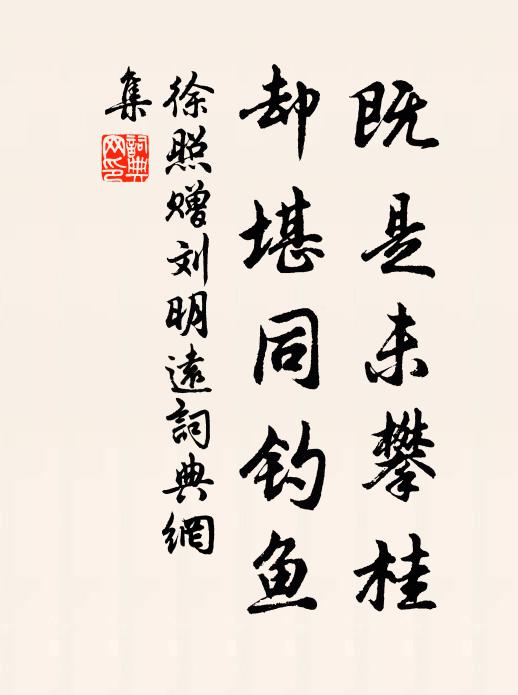 既是未攀桂
却堪同钓鱼
徐照赠刘明遠詞典網
集
詞典
网印